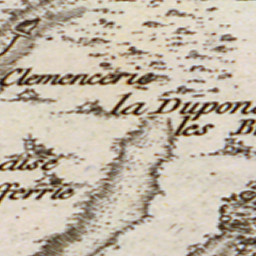 Clemencerie
la Dupon
les B
aise
fferrie